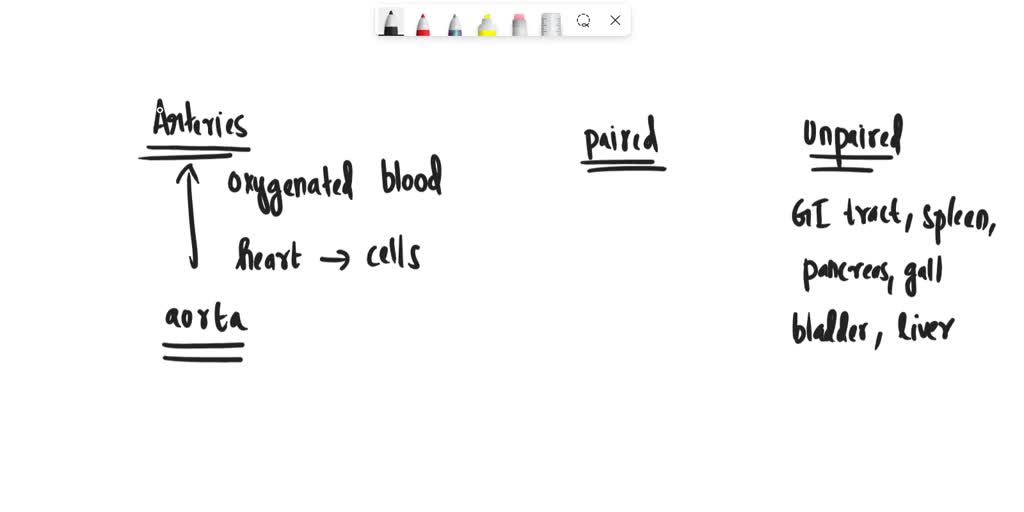 Arteries
oxygenated blood
heart → cells
aorta
paired
Unpaired
GI tract, spleen,
pancreas, gall
bladder, liver